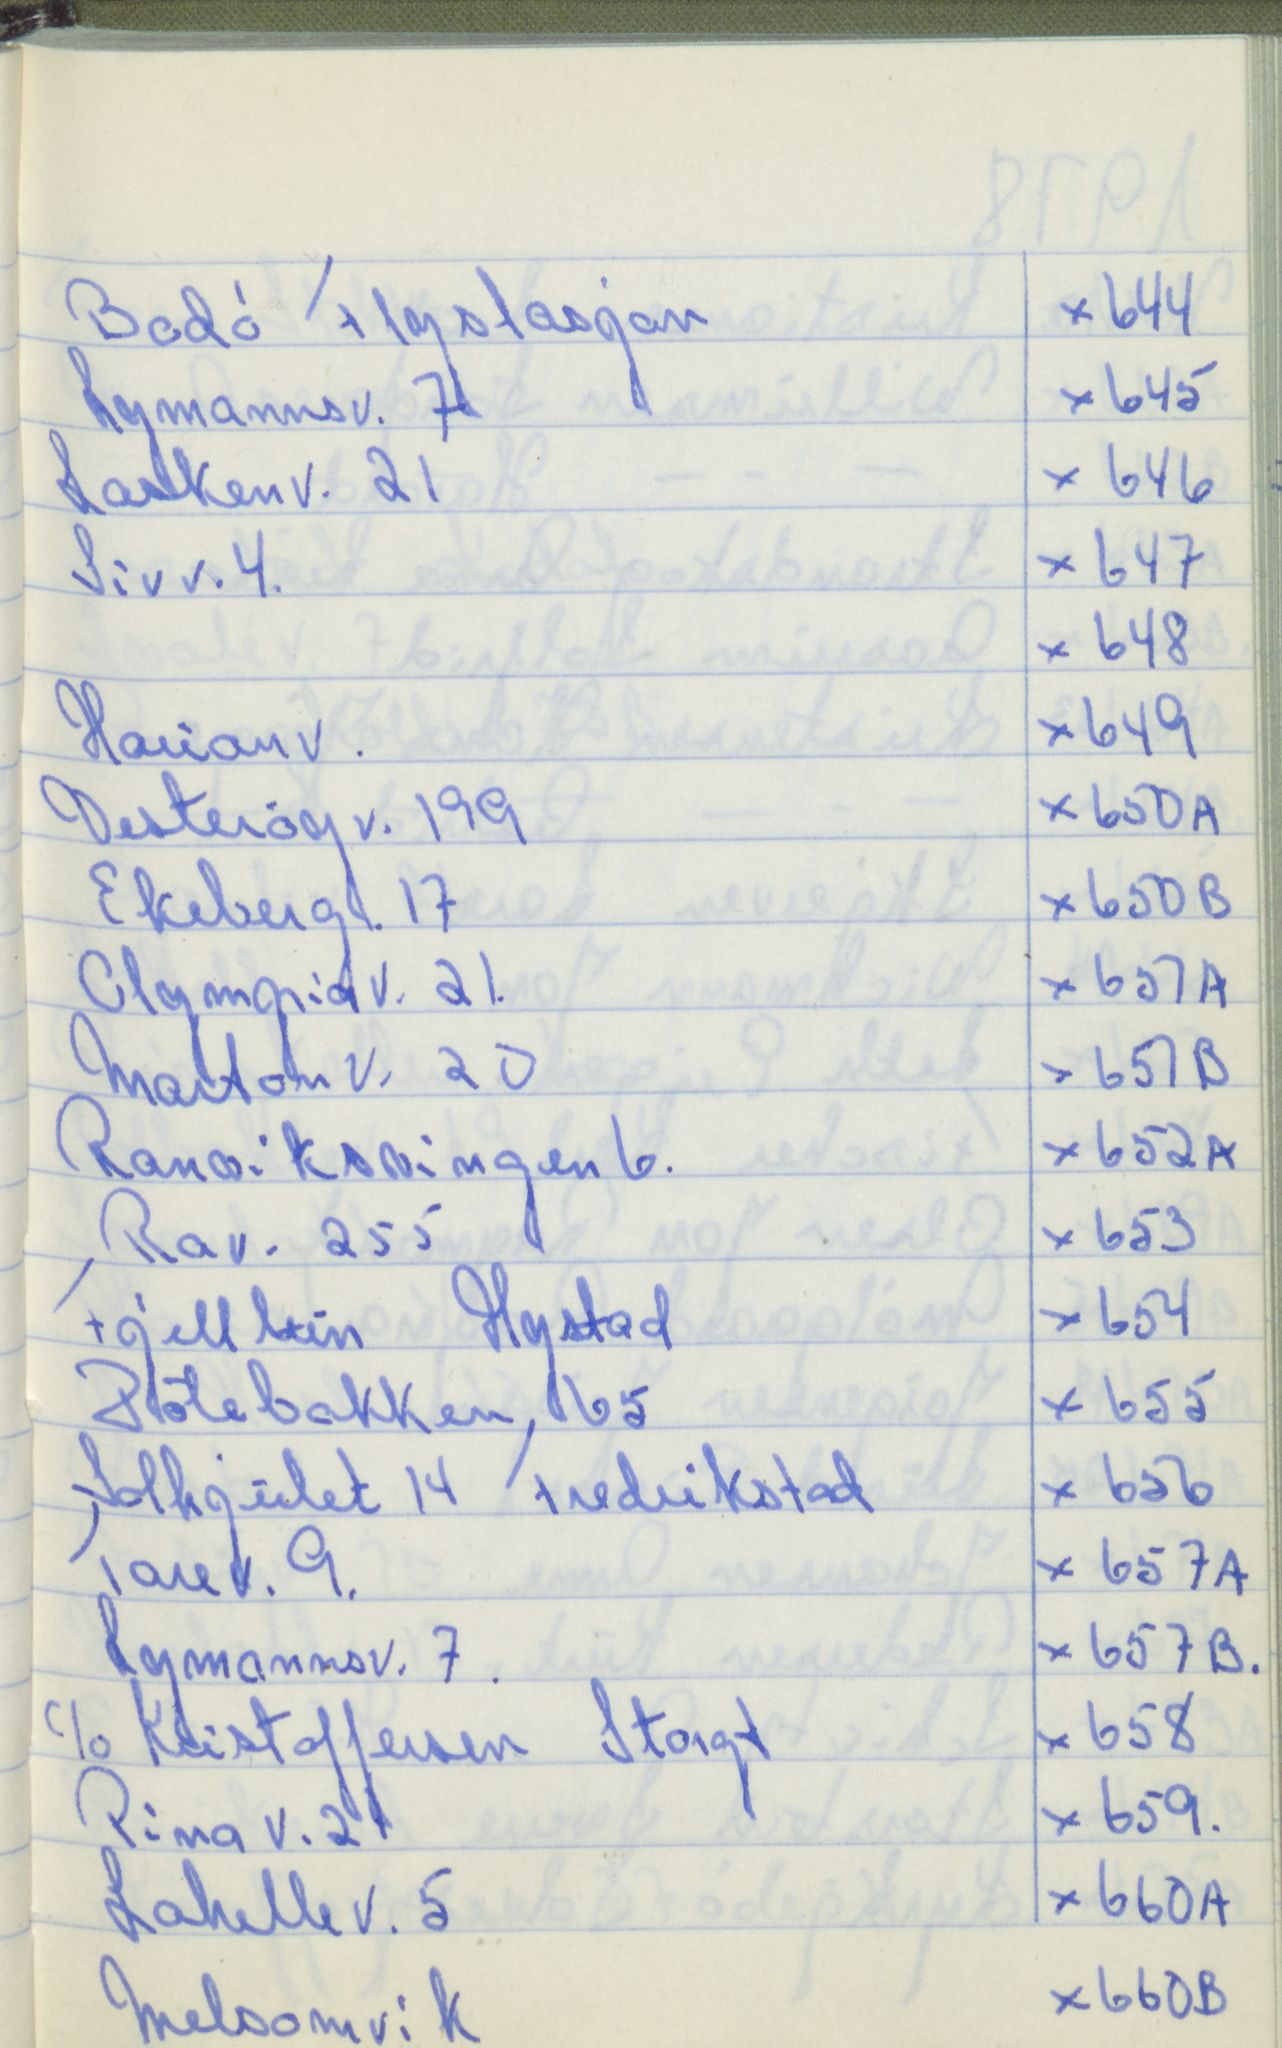 Bodö Flystasjon × 644
Rymannsv. 7 × 645
Laskenv. 21 × 646
Sivv. 4. × 647
× 648
Marionv. × 649
Vesteröyv. 199 × 650A
Ekebergv. 17 × 650B
Olympiav. 21. × 651A
Martonv. 20 × 651B
Ranviksvingen 6. × 652A
Rav. 255 × 653
Fjellbein Hystad × 654
Plötebakken, 65 × 655
Solkjælet 14 Fredrikstad × 656
Tarev. 9. × 657A
Rymannsv. 7. × 657B.
c/o Kristoffersen Storgt × 658
Rinav. 21 × 659.
Lahellev. 5 × 660A
Melsomvik × 660B